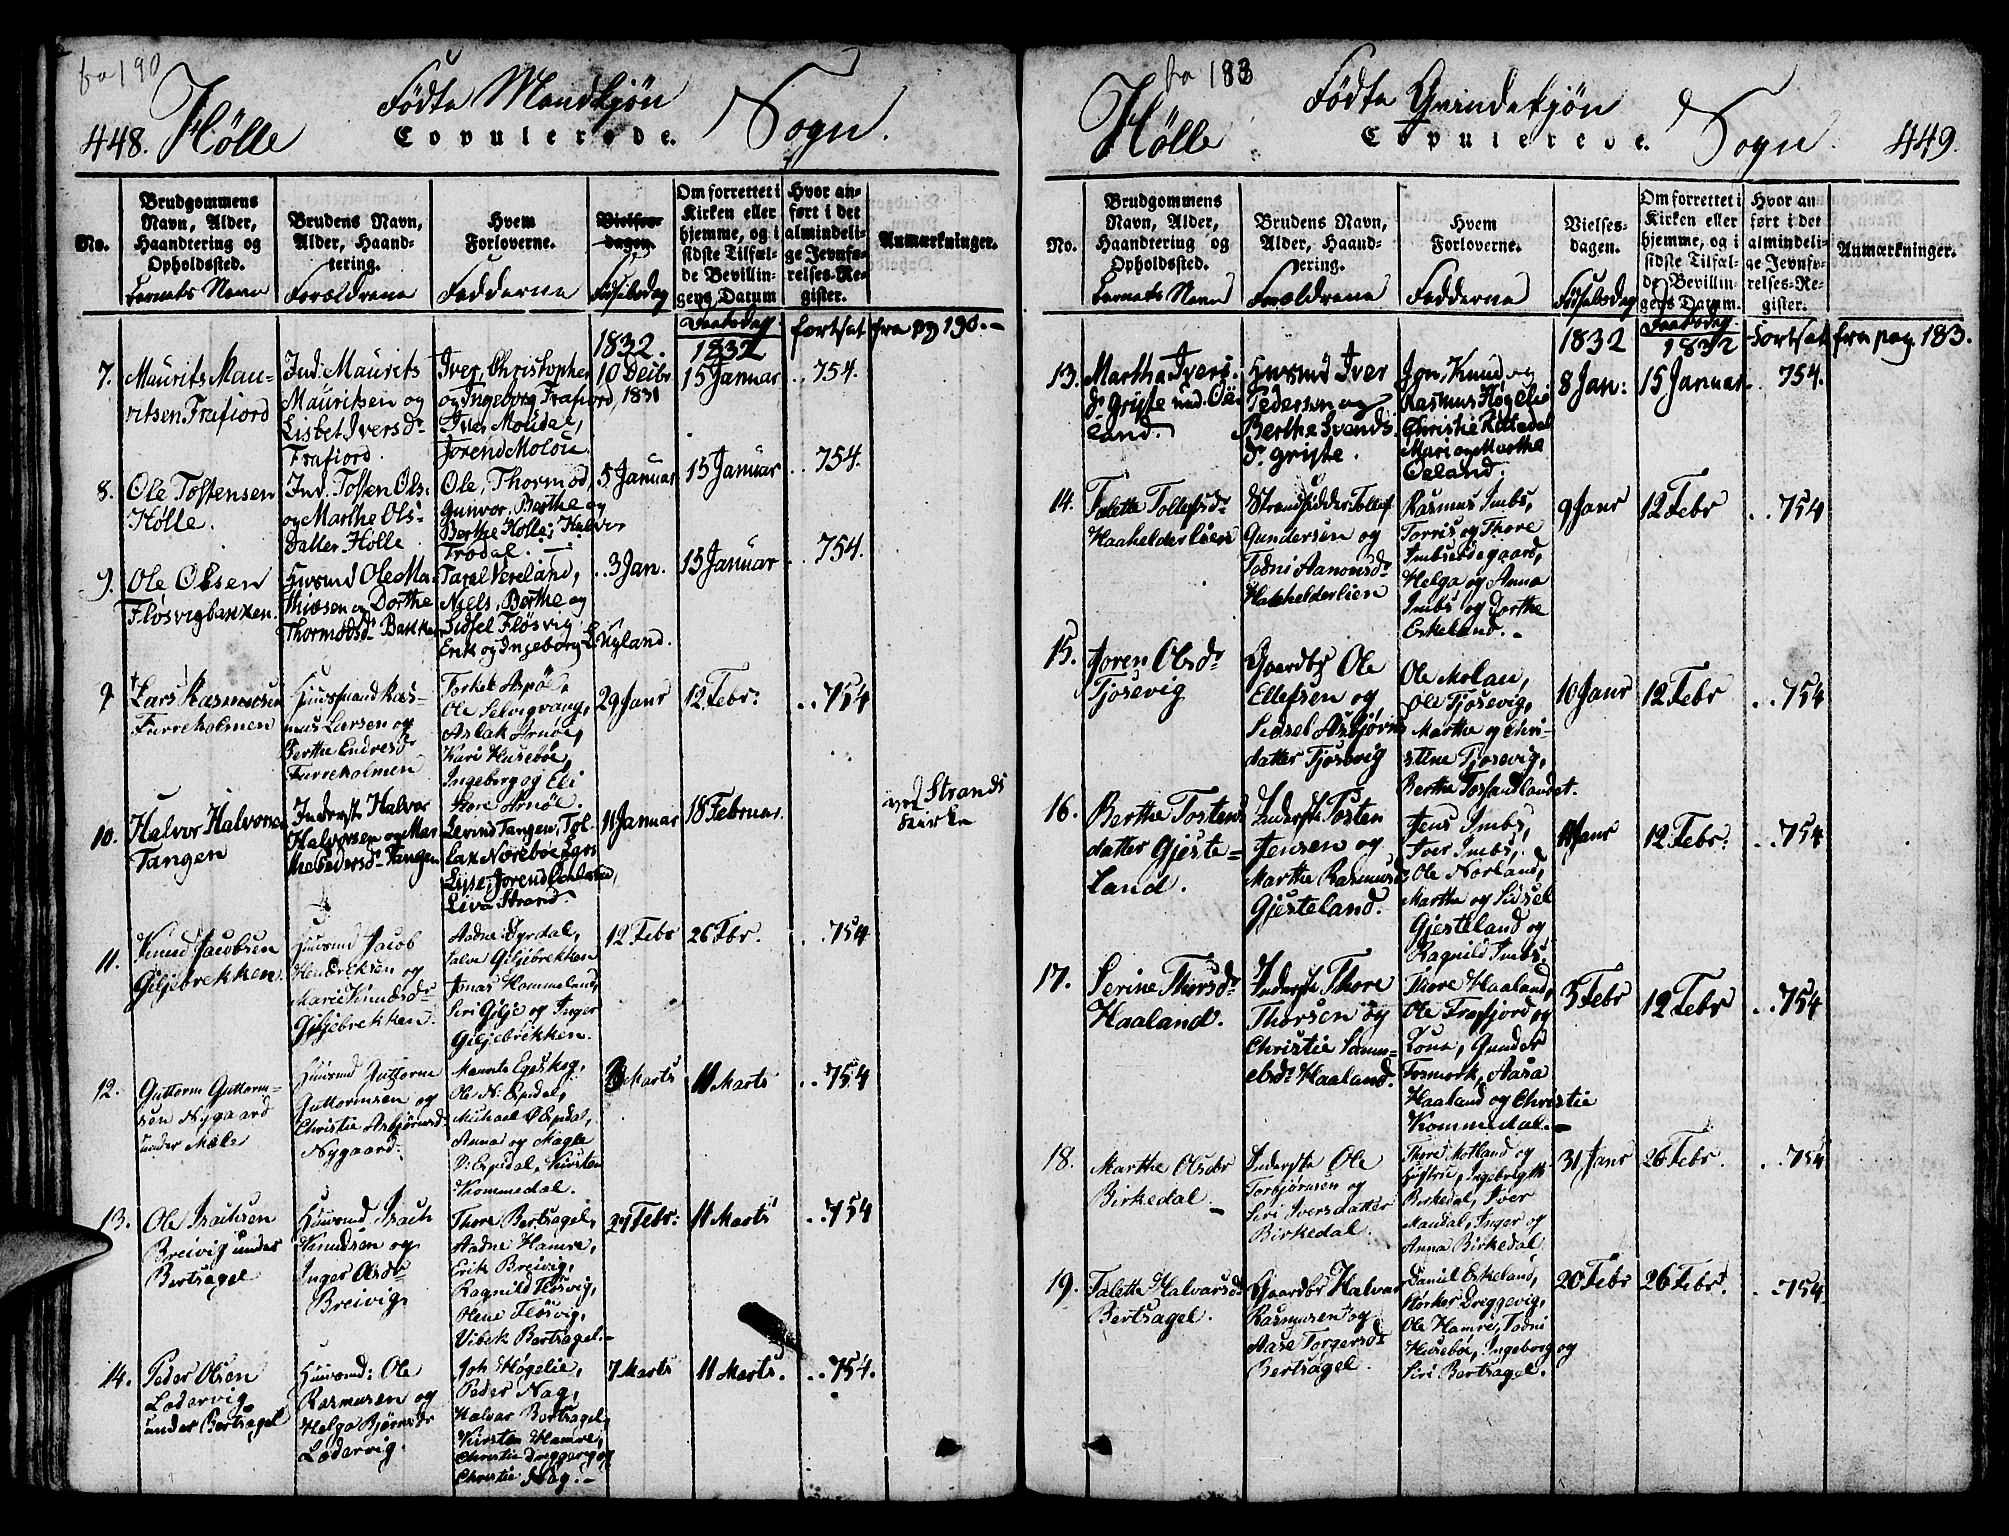 fra 190
448. Hølle Fødte Mandkjøn Sogn.
Copulerede.
No.
Brudgommens
Navn, Alder,
Haandtering og
Opholdssted.
Barnets Navn
Brudens Navn,
Alder, Haand-
tering.
Forældrene
Hvem
Forloverne.
Fadderne
Vielses-
dagen.
Fødselsdag
Om forrettet i
Kirken eller
hjemme, og i
sidste Tilfæl-
de Bevillin-
gens Datum
Daabsdag
Hvor an-
ført i det
almindeli-
ge Jevnfø-
relses-Re-
gister.
Anmærkninger.
fortsat fra pg 190.-
1832. 1832
7. Maurits Mau-
ritsen Frafiord
Ind. Maurits
Mauritsen og
Lisbet Iversdr
Frafiord.
Iver, Christopher
og Ingeborg Frafiord,
Iver Moudal,
Jorend Molou
10 Decbr
1831
15 Januar .. 754.
8. Ole Tostensen
Hølle.
Ind. Tosten Ols.
og Marthe Ols-
Datter Hølle
Ole, Thormod,
Gunvor, Berthe og
Berthe Hølle; Halvor
Frodal.
5 Januar 15 Januar .. 754.
9. Ole Olsen
Fløsvigbakken.
Huusmd Ole Ma-
thiæsen og Dorthe
Thormodsdr Bakken
Tarel Vereland,
Niels, Berthe og
Sidsel Fløsvig
Erik og Ingeborg Lutyland.
.. 3 Jan. 15 Januar .. 754.
9 Lars Rasmusen
Furreholmen
Huusmand Ras-
mus Larsen og
Berthe Endresdr
Furreholmen
Torkel Aspøe,
Ole Selvigvang,
Aslak Arnøe,
Kari Husebøe,
Ingeborg og Eli
Store Arnøe.
29 Janr 12 Febr. .. 754
10. Halvor Halvorsen
Tangen
Inderst Halvor
Halvorsen og Mar-
the Pedersdr Tangen
Eivind Tangen, Tol-
lak Nørebøe, Lars
Lyse, Jorend
Liva Strand.
11 Januar 18 Februar.
ved Strands
Kirke
11. Knud Jacobsen
Giljebrekken.
Huusmd Jacob
Hendriksen og
Marie Knudsdr
Giljebrekken.
Aadne Dyrdal,
Salve Giljebrekken
Jonas Hommeland,
Siri Gilje og Inger
Giljebrekken.
12 Febr 26 Fbr. .. 754
12. Guttorm Guttorm-
sen Nygaard
under Mæle
Huusmd Guttorm
Guttormsen og
Christie Asbjørnsd.
Nygaard.
Maurits Egeskog,
Ole N. Espedal,
Michael O Espdal,
Anna og Magla
D. Espdal, Kirsten
Kommedal.
3 Marts 11 Marts .. 754
13. Ole Isachsen
Breivig under
Bertsagel
Huusmd Isach
Knudsen og
Inger Olsdr
Breivig
Thore Bertsagel,
Aadne Hamre,
Erik Breivig,
Ragnild Fløsvig,
Olene Fløsvig,
Vibek Bertsagel.-
27 Febr. 11 Marts .. 754
14. Peder Olsen
Ladervig
under Bertsagel
Huusmd: Ole
Rasmusen og
Helga Bjørnsdr
Ladervig.
Joh Høgelie,
Peder Nag,
Halvor Bertsagel,
Kirsten Hamre,
Christie Dreggevig og
Christie Nag.-
7 Marts 11 Marts. .. 754.
fra 183
Hølle Fødte Qvindekjøn Sogn. 449.
Copulerede.
No.
Brudgommens
Navn, Alder,
Haandtering og
Opholdssted.
Barnets Navn
Brudens Navn,
Alder, Haand-
tering.
Forældrene
Hvem
Forloverne.
Fadderne
Vielses-
dagen.
Fødselsdag
Om forrettet i
Kirken eller
hjemme, og i
sidste Tilfæl-
de Bevillin-
gens Datum.
Daabsdag
Hvor an-
ført i det
almindeli-
ge Jevnfø-
relses-Re-
gister.
Anmærkninger.
1832 1832 fortsat fra pag. 183.
13. Martha Ivers-
dr Gryte und. Øie-
land.
Huusmd Iver
Pedersen og
Berthe Svends-
dr Gryte.
Jon, Knud og
Rasmus Høgelie
Christie Rettedal
Mari og Marthe
Øeland.
8 Jan: 15 Januar .. 754.
14. Talette Tollefsdr
Haahelderlien
Strandsidder Tollef
Gundersen og
Todni Aanonsdr
Haahelderlien
Rasmus Imbs,
Torris og Thore
Imbsødegaard,
Helga og Anna
Imbs og Dorthe
Eskeland.-
9 Janr 12 Febr .. 754
15. Joren Olsdr
Tjosevig
Gaardbr Ole
Ellefsen og
Sidsel Asbjørns-
datter Tjosevig
Ole Molan,
Ole Tjosevig,
Marthe og Chri-
stine Tjosevig,
Berthe Fossandlandet.
10 Janr 12 Febr .. 754
16. Berthe Tostens-
datter Gjeste-
land.
Inderste Tosten
Jensen og
Marthe Rasmusd.
Gjesteland.
Jens Imbs,
Iver Imbs,
Ole Norland,
Marthe og Sidsel
Gjesteland og
Ragnild Imbs.
11 Janr 12 Febr. .. 754
17. Serine Thorsdr
Haaland.
Inderste Thore
Thorsen og
Christie Samu-
elsdr Haaland.
Thore Haaland,
Ole Frafjord og
Kone, Gunder
Fosmork, Aasa
Haaland og Christie
Kommedal.-
5 Febr 12 Febr .. 754
18. Marthe Olsdr
Birkedal
Inderste Ole
Torbjørnsen og
Siri Iversdatter
Birkedal.
Thore Motland og
Hustru, Ingebrigth
Birkedal, Iver
Maudal, Inger og
Anna Birkedal
31 Janr 26 Febr. .. 754
19. Talette Halvorsd.
Bertsagel.
Gaardbr Halvor
Rasmusen og
Aase Torgersdr
Bertsagel.
Daniel Eskeland,
Størker Dreggevig,
Ole Hamre, Todni
Husebøe, Ingeborg og
Siri Bertsagel.
20 Febr 26 Febr. .. 754